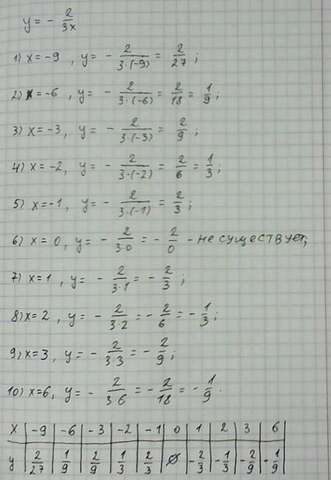 y = - 2/3x
1) x = -9 , y = - 2/(3·(-9)) = 2/27 ;
2) x = -6 , y = - 2/(3·(-6)) = 2/18 = 1/9 ;
3) x = -3 , y = - 2/(3·(-3)) = 2/9 ;
4) x = -2 , y = - 2/(3·(-2)) = 2/6 = 1/3 ;
5) x = -1 , y = - 2/(3·(-1)) = 2/3 ;
6) x = 0 , y = - 2/(3·0) = - 2/0 - не существует;
7) x = 1 , y = - 2/(3·1) = - 2/3 ;
8) x = 2 , y = - 2/(3·2) = - 2/6 = - 1/3 ;
9) x = 3 , y = - 2/(3·3) = - 2/9 ;
10) x = 6 , y = - 2/(3·6) = - 2/18 = - 1/9 .
x | -9 | -6 | -3 | -2 | -1 | 0 | 1 | 2 | 3 | 6
y | 2/27 | 1/9 | 2/9 | 1/3 | 2/3 | ∅ | -2/3 | -1/3 | -2/9 | -1/9